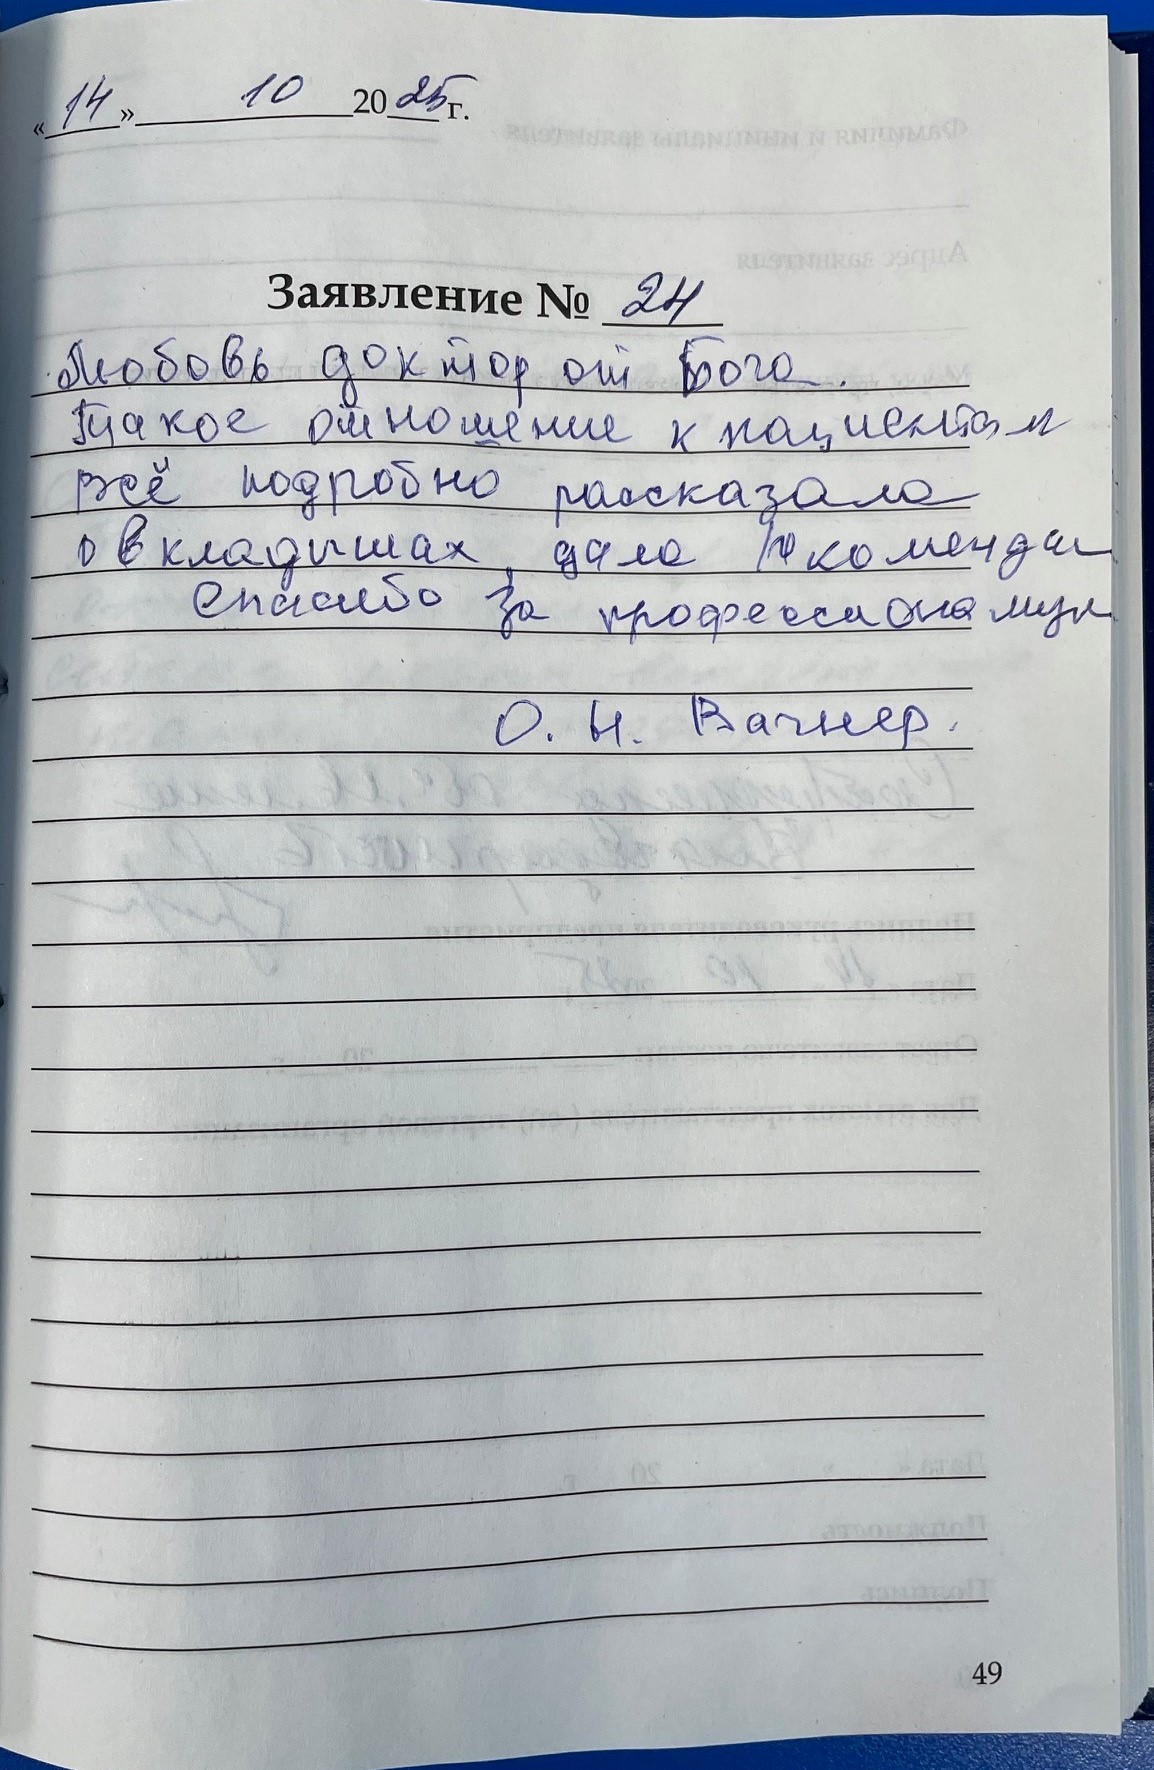 «14» 10 2025 г.
Заявление № 24
Любовь доктор от Бога.
Такое отношение к пациентам
всё подробно рассказала
о вкладышах, дала рекомендац
Спасибо за профессионализм
О. Н. Вагнер.
49